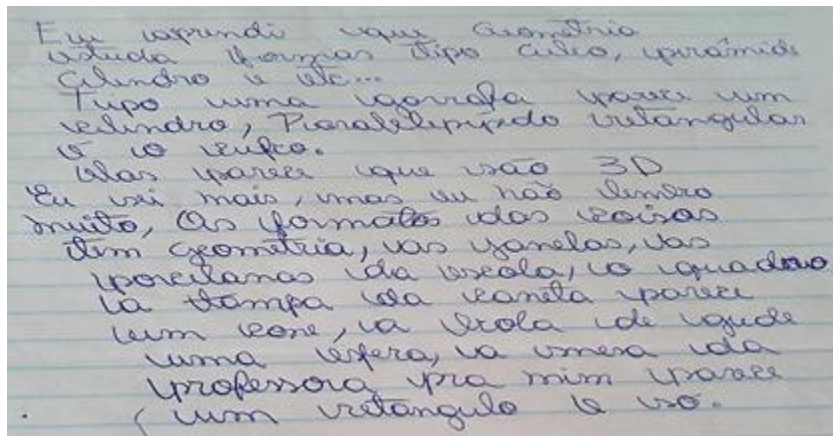 Eu aprendi que Geometria
estuda formas tipo cubo, pirâmide
Cilindro e etc...
Tipo uma garrafa parece um
cilindro, Paralelepípedo retangular
é o cubo.
elas parece que são 3D
Eu sei mais, mas eu não lembro
muito, As formatos das coisas
tem geometria, as janelas, as
porcelanas da escola, o quadro
a tampa da caneta parece
um cone, a bola de gude
uma esfera, a mesa da
professora pra mim parece
um retangulo e só.